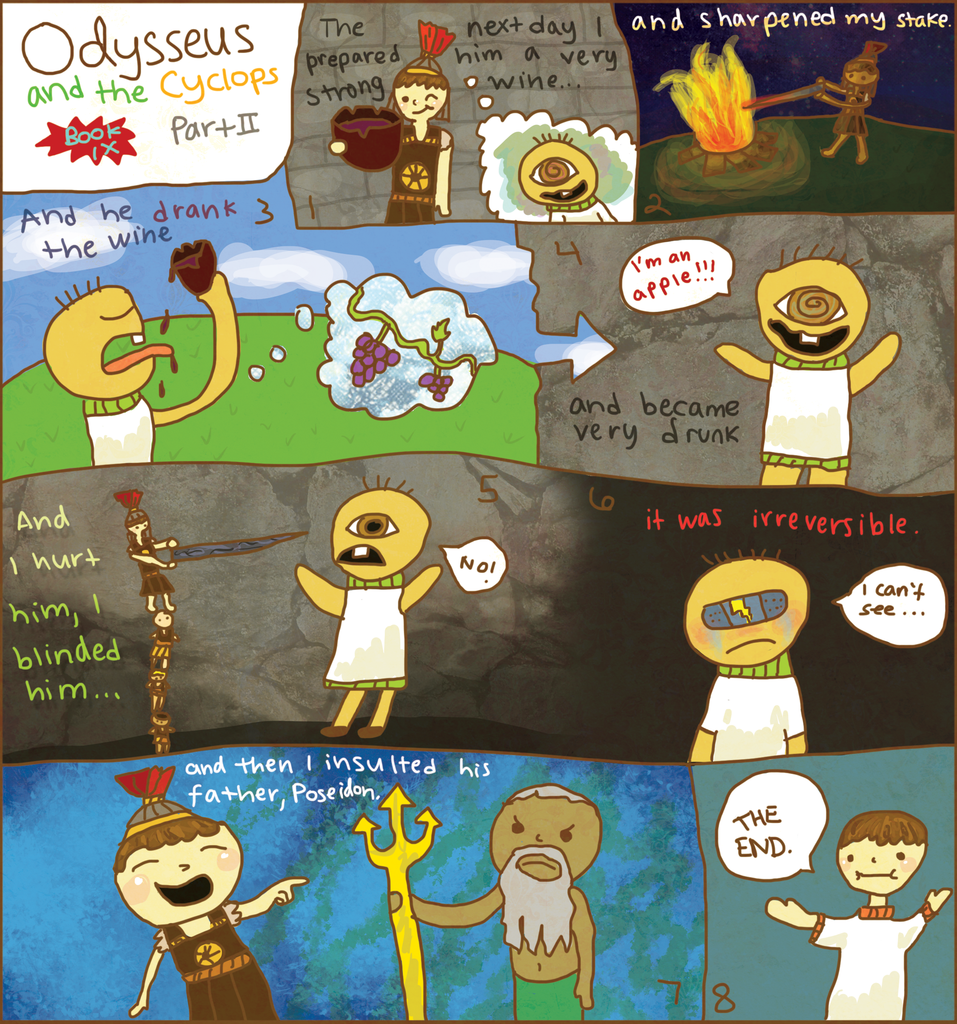 Odysseus
and the Cyclops
Book IX
Part II
The next day I
prepared him a very
strong wine...
1
and sharpened my stake.
2
And he drank
the wine
3
4
I'm an
apple!!!
and became
very drunk
5
And
I hurt
him, I
blinded
him...
NO!
6
it was irreversible.
I can't
see...
and then I insulted his
father, Poseidon.
7
THE
END.
8